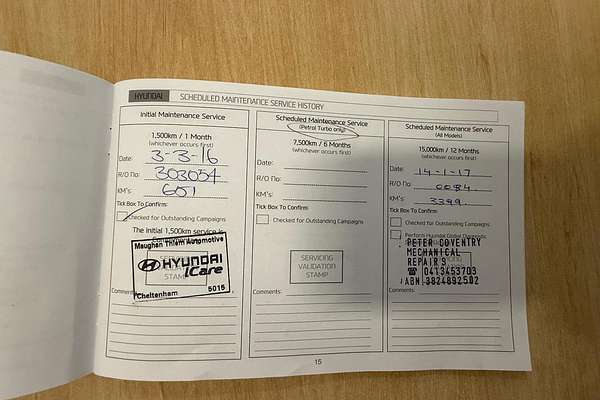 HYUNDAI SCHEDULED MAINTENANCE SERVICE HISTORY
Initial Maintenance Service
1,500km / 1 Month
(whichever occurs first)
Date: 3-3-16
R/O no: 303054
KM's: 601
Tick Box To Confirm:
Checked for Outstanding Campaigns
The Initial 1,500km service is
Maughan Thiem Automotive
HYUNDAI
iCare
STAMP
Cheltenham 5015
Comments:
Scheduled Maintenance Service
(Petrol Turbo only)
7,500km / 6 Months
(whichever occurs first)
Date:
R/O no:
KM's:
Tick Box To Confirm:
Checked for Outstanding Campaigns
SERVICING
VALIDATION
STAMP
Comments:
Scheduled Maintenance Service
(All Models)
15,000km / 12 Months
(whichever occurs first)
Date: 14-1-17
R/O no: 0084.
KM's: 3399.
Tick Box To Confirm:
Checked for Outstanding Campaigns
Perform Hyundai Global Diagnostic
PETER COVENTRY
MECHANICAL
REPAIRS
☎ 0413453703
ABN 3824892502
Comments:
15